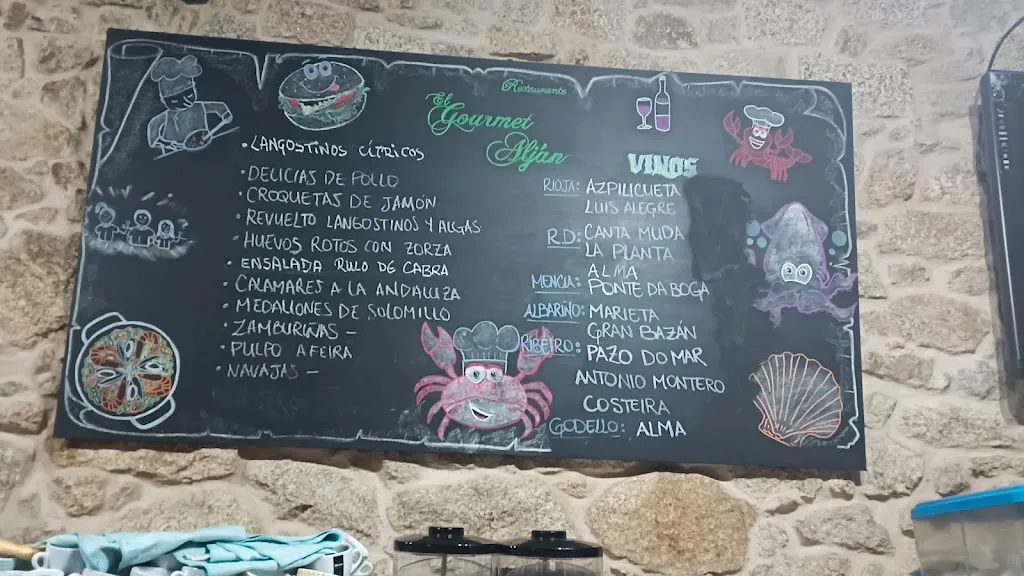 Restaurante
El Gourmet
Alján
• LANGOSTINOS CÍTRICOS
• DELICIAS DE POLLO
• CROQUETAS DE JAMÓN
• REVUELTO LANGOSTINOS Y ALGAS
• HUEVOS ROTOS CON ZORZA
• ENSALADA RULO DE CABRA
• CALAMARES A LA ANDALUZA
• MEDALLONES DE SOLOMILLO
• ZAMBURIÑAS –
• PULPO A FEIRA
• NAVAJAS –
VINOS
RIOJA: AZPILICUETA
LUIS ALEGRE
R.D: CANTA MUDA
LA PLANTA
ALMA
MENCIA: PONTE DA BOGA
ALBARIÑO: MARIETA
GRAN BAZÁN
RIBEIRO: PAZO DO MAR
ANTONIO MONTERO
COSTEIRA
GODELLO: ALMA